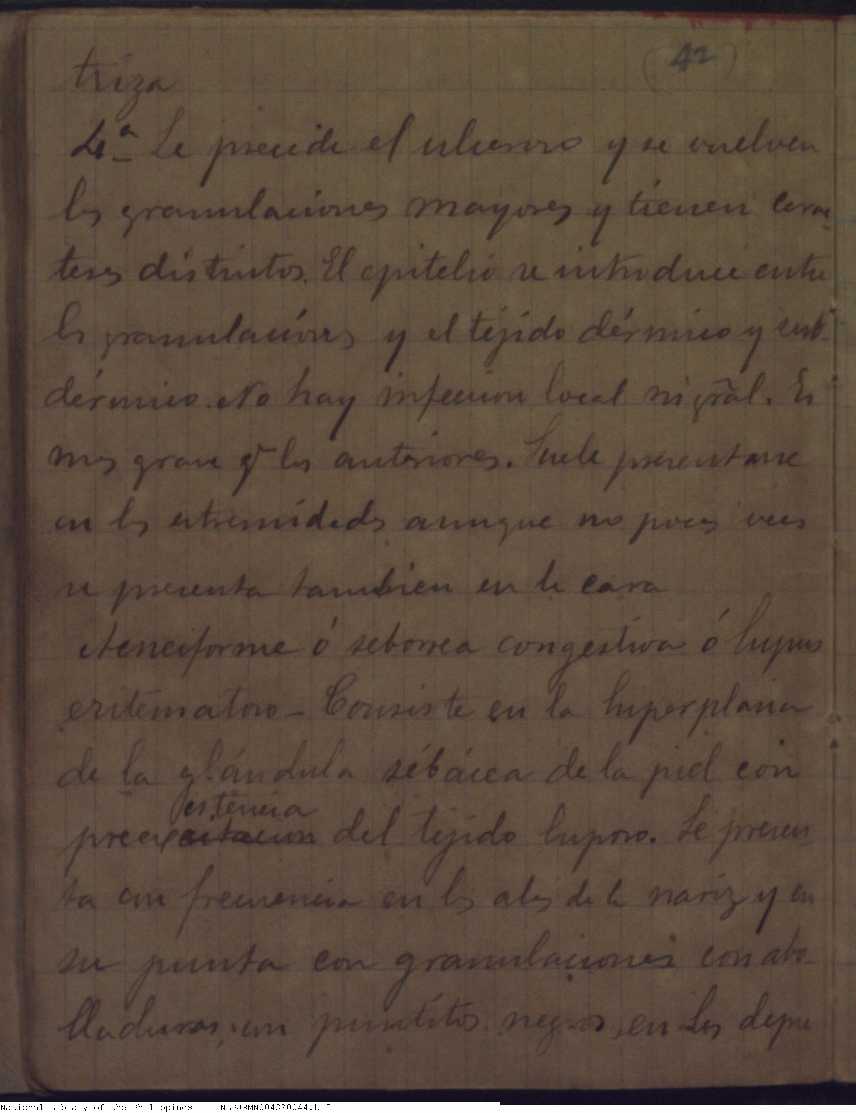 (42)
triza
4ª Le precede el ulceroso y se vuelven
ls granulaciones mayores y tienen carac-
teres distintos. El epitelio se introduce entre
ls granulaciónes y el tejido dérmico y sub-
dérmico. No hay infeccion local ni gral. Es
mas grave q ls anteriores. Suele presentarse
en ls extremidads aunque no pocas veces
se presenta tambien en la cara
Acneiforme ó seborrea congestiva ó lupus
eritematoso - Consiste en la hiperplasia
de la glándula sébácea de la piel con
preexistencia del tejido luposo. Se presen
ta con frecuencia en ls alas de la nariz y en
su punta con granulaciones con abo-
lladuras, con puntitos negros, en las depre
National Library of the Philippines